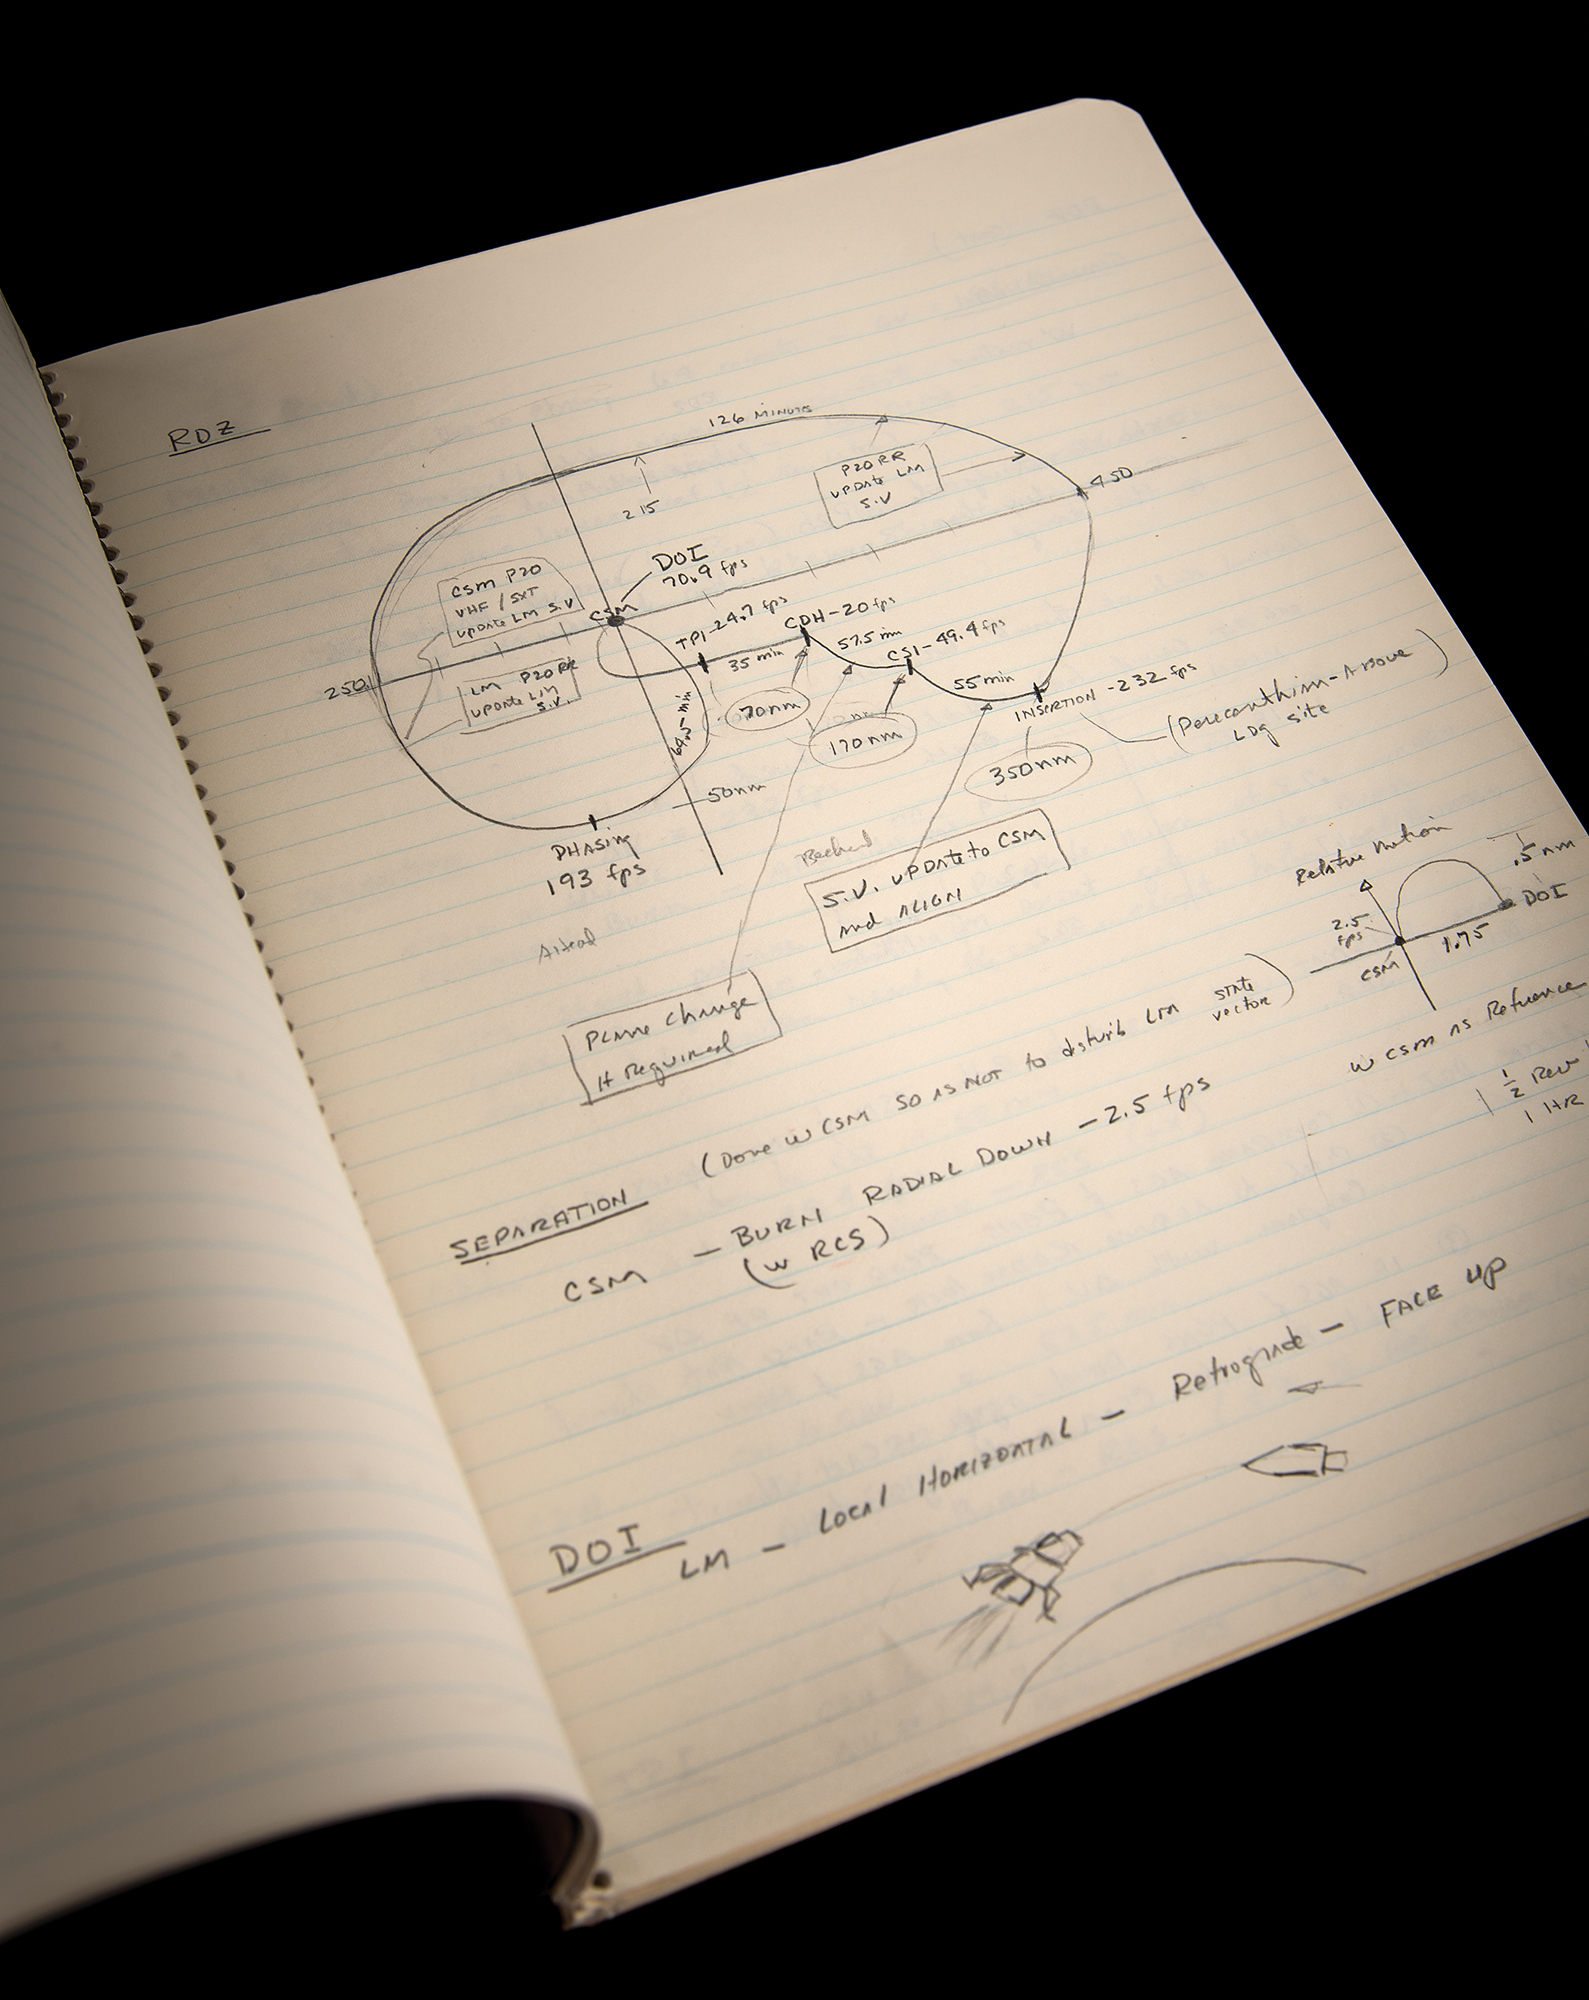 RDZ
126 MINUTE
P20 RR
UPDATE LM
S.V
450
215
DOI
70.9 fps
CSM P20
VHF / SXT
UPDATE LM S.V
CSM
TPI-24.7 fps
CDH-20 fps
57.5 min
CSI-49.4 fps
35 min
55 min
250
LM P20 RR
UPDATE LM
S.V.
min
70nm
170nm
INSERTION -232 fps
(Pericynthion-Above
LDG site
)
350nm
50nm
PHASING
193 fps
S.V. UPDATE to CSM
and ALIGN
Ahead
Plane Change
If Required
Relative Motion
.5 nm
DOI
2.5
fps
1.75
CSM
w CSM as Reference
1/2 Rev
1 HR
SEPARATION
(Done w CSM SO AS NOT to disturb LM state
vector)
CSM - BURN RADIAL DOWN - 2.5 fps
(w RCS)
DOI
LM - Local HORIZONTAL - Retrograde - FACE UP